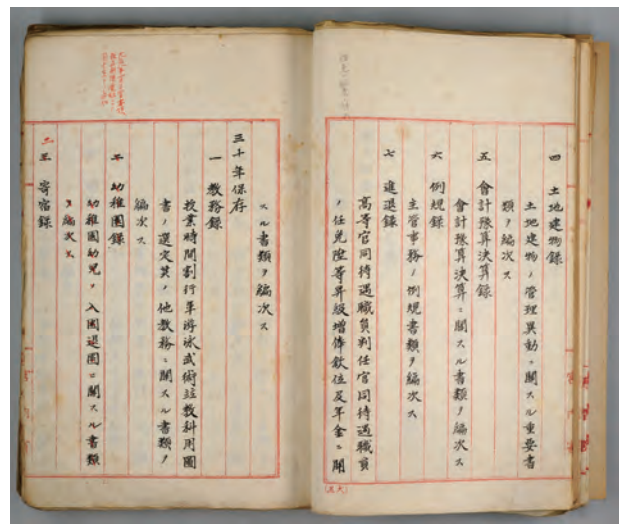 四 土地建物録
土地建物ノ管理異動ニ関スル重要書
類ヲ編次ス
五 會計豫算決算録
會計豫算決算ニ関スル書類ヲ編次ス
六 例規録
主管事務ノ例規書類ヲ編次ス
七 進退録
高等官同待遇職員判任官同待遇職員
ノ任免陞等昇級増俸叙位及年金ニ関
スル書類ヲ編次ス
三十年保存
一 教務録
授業時間割行軍游泳武術並教科用圖
書ノ選定其ノ他教務ニ関スル書類ヲ
編次ス
二 幼稚園録
幼稚園幼兒ノ入園退園ニ関スル書類
ヲ編次ス
三 寄宿録